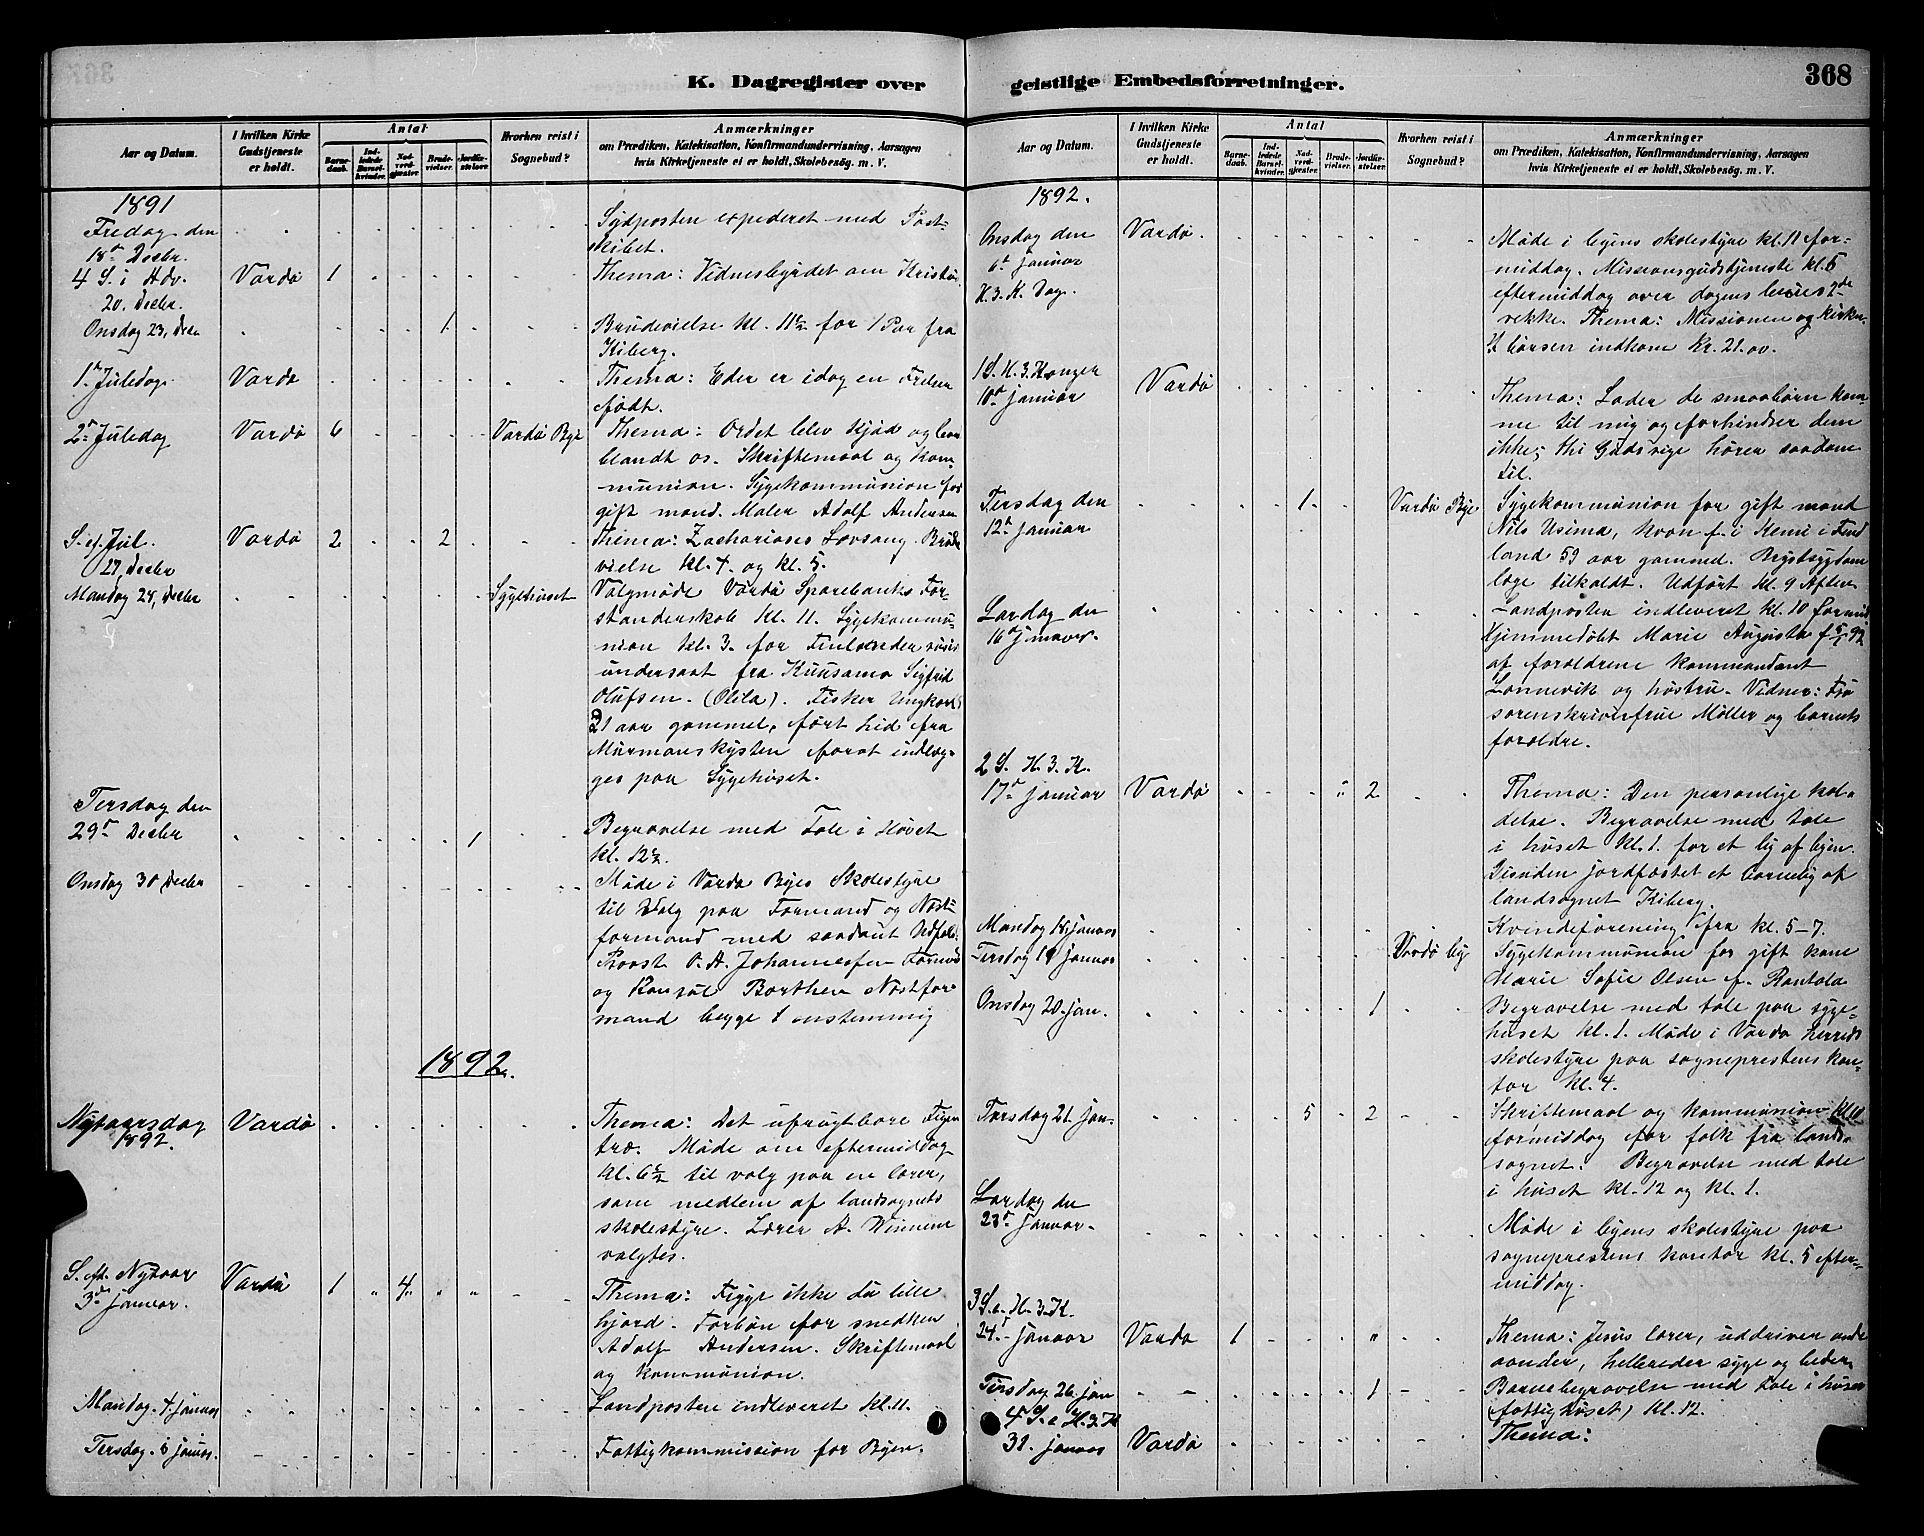 K. Dagregister over geistlige Embedsforretninger.
368
Aar og Datum.
I hvilken Kirke Gudstjeneste er holdt.
Antal
Barnedaab.
Indledede Barselkvinder.
Nadverdgjæster.
Brudevielser.
Jordfæstelser.
Hvorhen reist i Sognebud?
Anmærkninger
om Prædiken, Katekisation, Konfirmandundervisning, Aarsagen
hvis Kirketjeneste ei er holdt, Skolebesøg. m. V.
1891
Fredag den
18d Decbr.
Sydposten expederet med Post-
skibet.
4 S. i Adv.
20. Decbr.
Vardø 1
Thema: Vidnesbyrdet om Kristus.
Onsdag 23, Decbr
1.
Brudevielse kl. 11½ for 1 Par fra
Kiberg.
1d Juledag.
Vardø
Thema: Eder er idag en Frelser
født.
2d Juledag
Vardø 6
Vardø By
Thema: Ordet blev kjød og bor
blandt os. Skriftemaal og kom-
munion. Sygekommunion for
gift mand. Maler Adolf Andersen
S. ef. Jul.
27, Decbr
Vardø 2 2
Thema: Zacharioses Lovsang. Brude
vielse kl. 4. og kl. 5.
Mandag 28, Decbr
Sygehuset
Valgmøde Vardø Sparebanks For-
standerskab kl. 11. Sygekommu-
nion kl. 3. for Finlænder russisk
undersaat fra Kuusamo Sigfrid
Olufsen. (Olila). Fisker Ungkarl
21 aar gammel, ført hid fra
Murmanskysten forat indlæg-
ges paa Sygehuset.
Tirsdag den
29d Decbr
1
Begravelse med Tale i Huset
kl. 12½.
Onsdag 30 Decbr
Møde i Vardø Byes Skolestyre
til Valg paa Formand og Næst-
formand med saadant Udfald:
Provst O. A. Johannesen Formand
og Konsul Borthen Næstfor
mand begge enstemmig
1892.
Nytaarsdag
1892.
Vardø
Thema: Det ufrugtbare Figen
træ. Møde om eftermiddag
kl. 6½ til valg paa en lærer,
som medlem af landsognets
skolestyre. Lærer A. Winnem
valgtes.
S. eft. Nytaar
3d januar.
Vardø 1 4
Thema: Frygt ikke du lille
hjord. Forbøn for snedker
Adolf Andersen. Skriftemaal
og kommunion.
Mandag. 4 januar
Landposten indleveret kl. 11.
Tirsdag. 5 januar.
Fattigkommission for Byen.
Aar og Datum.
I hvilken Kirke Gudstjeneste er holdt.
Antal
Barnedaab.
Indledede Barselkvinder.
Nadverdgjæster.
Brudevielser.
Jordfæstelser.
Hvorhen reist i Sognebud?
Anmærkninger
om Prædiken, Katekisation, Konfirmandundervisning, Aarsagen
hvis Kirketjeneste ei er holdt, Skolebesøg. m. V.
1892.
Onsdag den
6d januar
H. 3. K. Dag.
Vardø.
Møde i byens skolestyre kl. 11 for-
middag. Missionsgudstjeneste kl. 5
eftermiddag over dagens texts 2de
rekke. Thema: Missionen og kirken.
I børsen indkom Kr. 21.00.
1 S. H. 3. Konger
10d januar
Vardø
Thema: Lader de smaabørn kom-
me til mig og forhindrer dem
ikke; thi Guds rige hører saadanne
til.
Tirsdag den
12d januar
1.
Vardø Bye
Sygekommunion for gift mand
Nils Usima, kvæn f. i Kemi i Find
land 59 aar gammel. Brystsygdom
læge tilkaldt. Udført kl. 9 Aften
Lørdag den
16d januar.
Landposten indleveret kl. 10 formid
Hjemmedøbt Marie Augusta f. 5/1 92
af forældrene kommandant
Lonnevik og hustru. Vidner: Fru
sorenskriverfrue Møller og barnets
forældre.
2 S. H. 3. K.
17d januar
Vardø 2
Thema: Den personlige hel-
delse. Begravelse med tale
i huset kl. 1. for et lig af byen.
Desuden jordfæstet et barnelig af
landsognet Kiberg.
Mandag 18 januar
Kvindeforening fra kl. 5-7.
Tirsdag 19 januar
Vardø by
Sygekommunion for gift kone
Marie Sofie Olsen f. Rantola
Onsdag 20. jan.
1
Begravelse med tale paa syge-
huset kl. 1. Møde i Vardø herreds
skolestyre paa sogneprestens kon-
tor kl. 4.
Torsdag 21. jan.
5 2
Skriftemaal og kommunion kl 10
formiddag for folk fra land-
sognet. Begravelse med tale
i huset kl. 12 og kl. 1.
Lørdag den
23d januar.
Møde i byens skolestyre paa
sogneprestens kontor kl. 5 efter-
middag.
3 S. e. H. 3. K.
24d januar
Vardø 1
Thema: Jesus lærer, uddriver onde
aander, helbreder syge og beder.
Tirsdag 26 jan
1
Barnebegravelse med tale i huset
(fattighuset) kl. 12.
4 S. e H. 3. K
31. januar
Vardø
Thema: